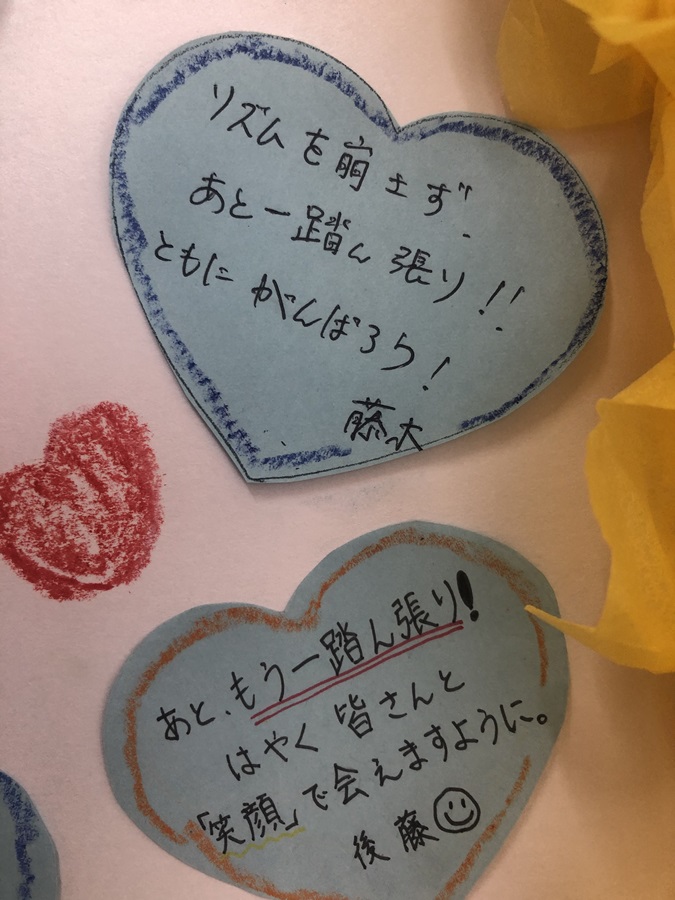 リズムを崩さず、
あと一踏ん張り!!
ともにがんばろう!
藤大
あと、もう一踏ん張り!
はやく皆さんと
「笑顔」で会えますように。
後藤